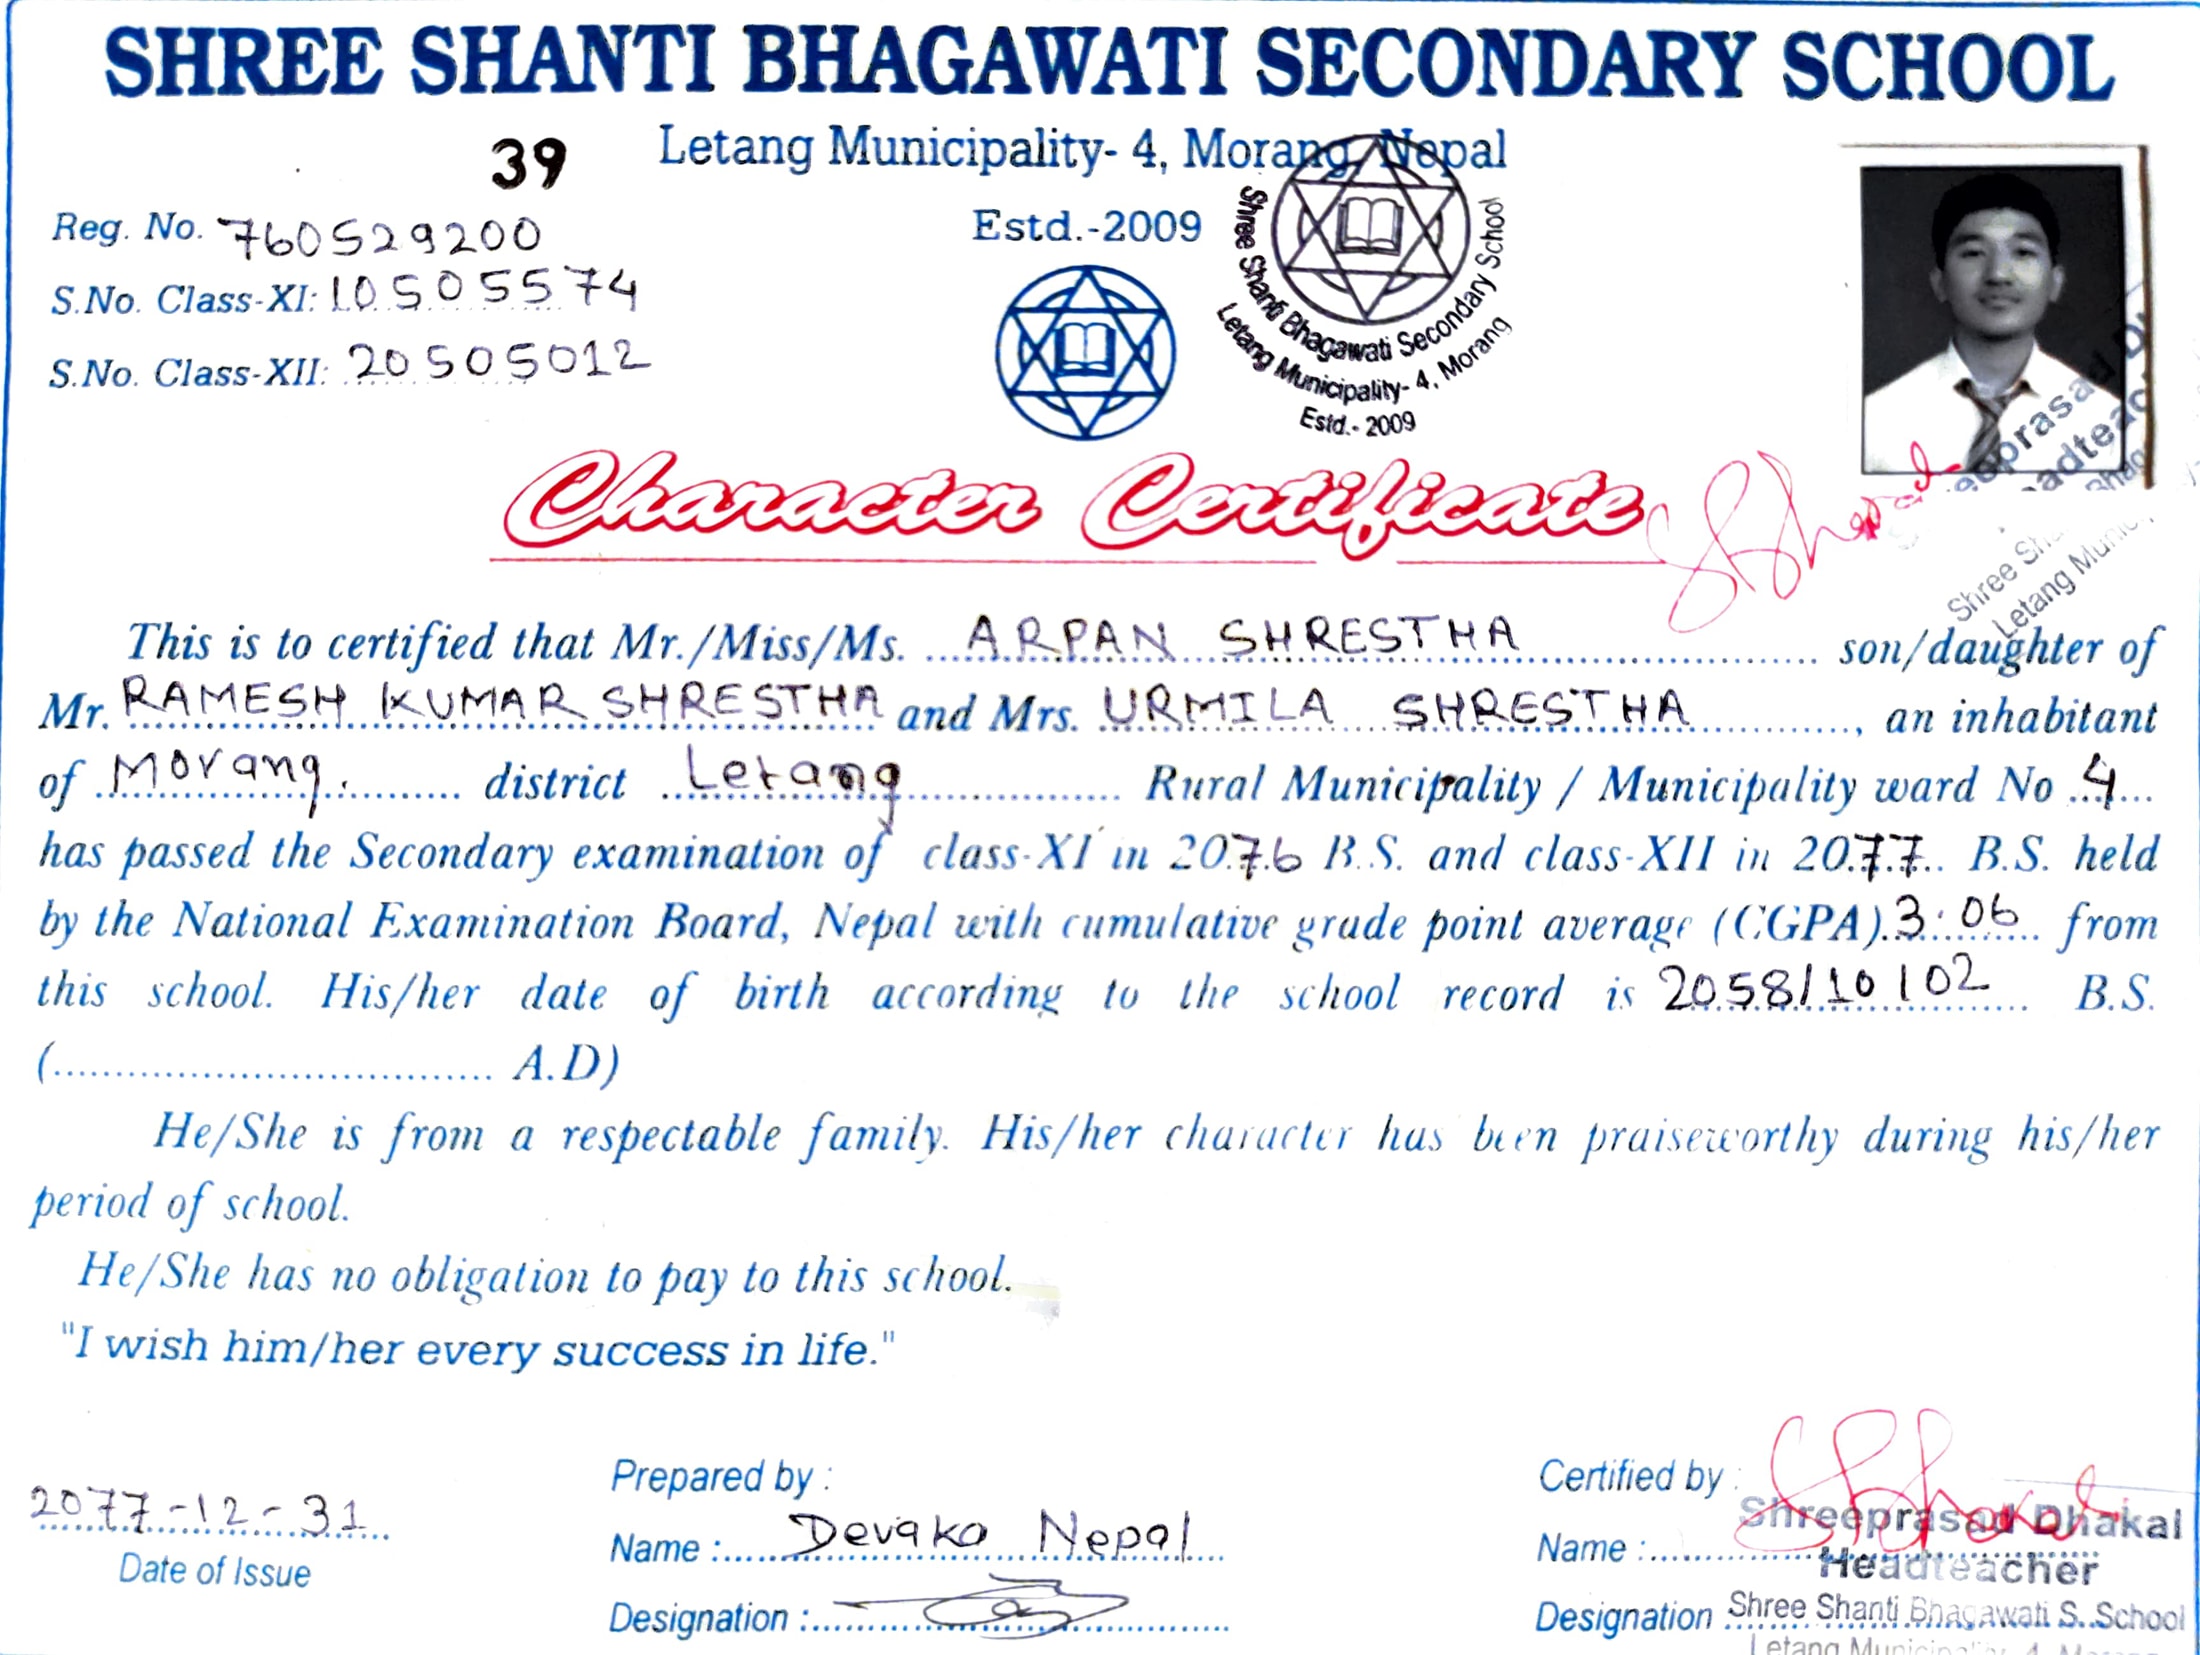 SHREE SHANTI BHAGAWATI SECONDARY SCHOOL
39
Letang Municipality- 4, Morang, Nepal
Reg. No. 760529200
Estd.-2009
S.No. Class-XI: 10505574
S.No. Class-XII: 20505012
Shree Shanti Bhagawati Secondary School
Letang Municipality- 4, Morang
Estd.- 2009
Character Certificate
Shree Sh
Letang Munic
This is to certified that Mr./Miss/Ms. ARPAN SHRESTHA son/daughter of
Mr. RAMESH KUMAR SHRESTHA and Mrs. URMILA SHRESTHA, an inhabitant
of Morang. district Letang Rural Municipality / Municipality ward No 4
has passed the Secondary examination of class-XI in 2076 B.S. and class-XII in 2077 B.S. held
by the National Examination Board, Nepal with cumulative grade point average (CGPA) 3.06 from
this school. His/her date of birth according to the school record is 2058/10/02 B.S.
(.................................... A.D)
He/She is from a respectable family. His/her character has been praiseworthy during his/her
period of school.
He/She has no obligation to pay to this school.
"I wish him/her every success in life."
2077-12-31
Date of Issue
Prepared by :
Name : Devako Nepal
Designation :
Certified by :
Name : Shreeprasad Dhakal
Headteacher
Designation Shree Shanti Bhagawati S. School
Letang Municipality- 4, Morang